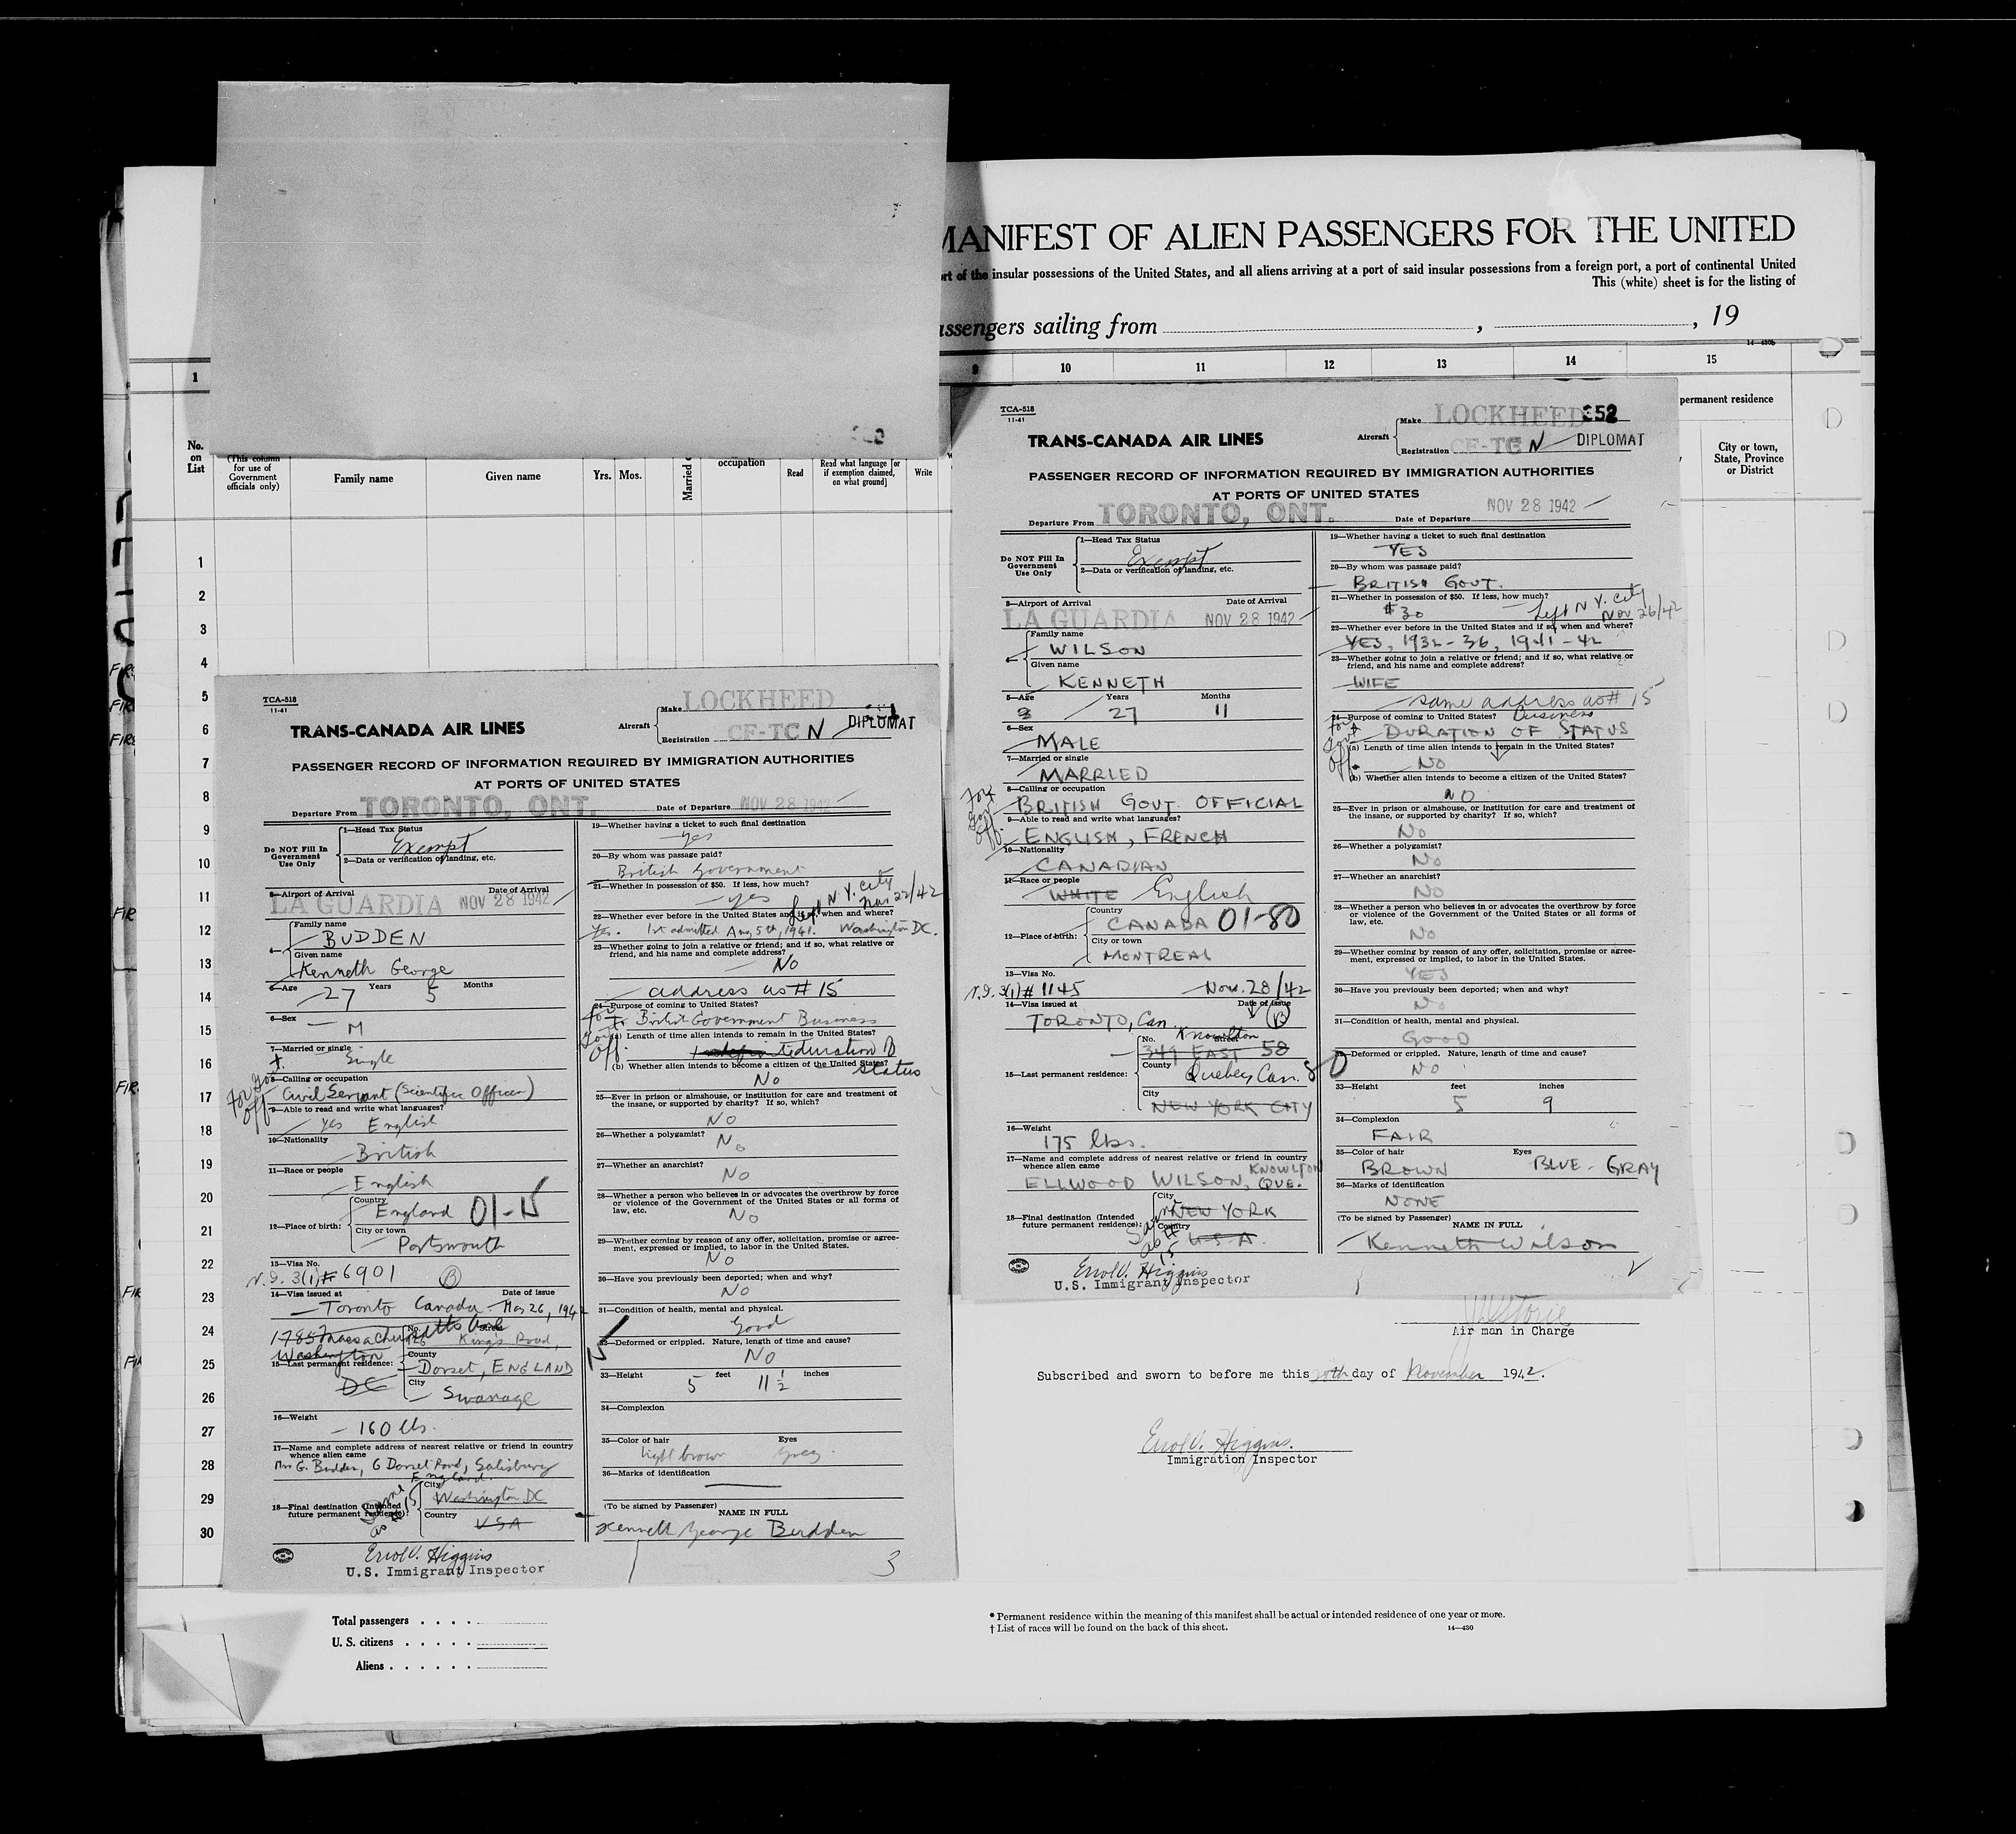 MANIFEST OF ALIEN PASSENGERS FOR THE UNITED
of the insular possessions of the United States, and all aliens arriving at a port of said insular possessions from a foreign port, a port of continental United
This (white) sheet is for the listing of
assengers sailing from , , 19
14—430b
1 9 10 11 12 13 14 15
permanent residence
No. on List
(This column for use of Government officials only)
Family name
Given name
Yrs. Mos.
Married
occupation
Read
Read what language [or if exemption claimed, on what ground]
Write
City or town, State, Province or District
1
2
3
4
5
6
7
8
9
10
11
12
13
14
15
16
17
18
19
20
21
22
23
24
25
26
27
28
29
30
TCA-518
11-41
TRANS-CANADA AIR LINES
Aircraft
Make LOCKHEED
Registration CF-TC N DIPLOMAT
PASSENGER RECORD OF INFORMATION REQUIRED BY IMMIGRATION AUTHORITIES
AT PORTS OF UNITED STATES
Departure From TORONTO, ONT. Date of Departure NOV 28 1942
Do NOT Fill In Government Use Only
1—Head Tax Status
Exempt
2—Data or verification of landing, etc.
3—Airport of Arrival Date of Arrival
LA GUARDIA NOV 28 1942
4—
Family name
BUDDEN
Given name
Kenneth George
5—Age Years Months
27 5
6—Sex
M
7—Married or single
Single
For Gov't Off.
8—Calling or occupation
Civil Servant (Scientific Officer)
9—Able to read and write what languages?
Yes English
10—Nationality
British
11—Race or people
English
12—Place of birth:
Country
England 01-15
City or town
Portsmouth
13—Visa No.
V.I. 3(1) # 6901 B
14—Visa issued at Date of issue
Toronto Canada 26, 1942
1785 Massachusetts Ave
Washington
DC
15—Last permanent residence:
No. Street
King's Road,
County
Dorset, ENGLAND
City
Swanage
16—Weight
160 lbs.
17—Name and complete address of nearest relative or friend in country whence alien came
Mrs G. Budden, 6 Dorset Road, Salisbury
England.
18—Final destination (Intended future permanent residence):
Same as # 15
City
Washington DC
Country
USA
Errol V. Higgins
U.S. Immigrant Inspector
19—Whether having a ticket to such final destination
Yes
20—By whom was passage paid?
British Government
21—Whether in possession of $50. If less, how much?
yes
Left N.Y. City Nov 22/42
22—Whether ever before in the United States and if so, when and where?
Yes. 1st admitted Aug 5th, 1941. Washington DC.
23—Whether going to join a relative or friend; and if so, what relative or friend, and his name and complete address?
No
address as # 15
24—Purpose of coming to United States?
British Government Business
For Gov't Off.
(a) Length of time alien intends to remain in the United States?
duration of status
(b) Whether alien intends to become a citizen of the United States?
No
25—Ever in prison or almshouse, or institution for care and treatment of the insane, or supported by charity? If so, which?
No
26—Whether a polygamist?
No
27—Whether an anarchist?
No
28—Whether a person who believes in or advocates the overthrow by force or violence of the Government of the United States or all forms of law, etc.
No
29—Whether coming by reason of any offer, solicitation, promise or agreement, expressed or implied, to labor in the United States.
No
30—Have you previously been deported; when and why?
No
31—Condition of health, mental and physical.
Good
15
32—Deformed or crippled. Nature, length of time and cause?
No
33—Height feet inches
5 11½
34—Complexion
35—Color of hair Eyes
light brown Grey
36—Marks of identification
(To be signed by Passenger) NAME IN FULL
Kenneth George Budden
3
TCA-518
11-41
TRANS-CANADA AIR LINES
Aircraft
Make LOCKHEED 352
Registration CF-TC N DIPLOMAT
PASSENGER RECORD OF INFORMATION REQUIRED BY IMMIGRATION AUTHORITIES
AT PORTS OF UNITED STATES
Departure From TORONTO, ONT. Date of Departure NOV 28 1942
Do NOT Fill In Government Use Only
1—Head Tax Status
Exempt
2—Data or verification of landing, etc.
3—Airport of Arrival Date of Arrival
LA GUARDIA NOV 28 1942
4—
Family name
WILSON
Given name
KENNETH
5—Age Years Months
27 11
6—Sex
MALE
7—Married or single
MARRIED
For Gov't Off.
8—Calling or occupation
BRITISH GOVT. OFFICIAL
9—Able to read and write what languages?
ENGLISH, FRENCH
10—Nationality
CANADIAN
11—Race or people
WHITE English
12—Place of birth:
Country
CANADA 01-80
City or town
MONTREAL
13—Visa No.
V.I. 3(1) # 1145 Nov. 28/42
14—Visa issued at Date of issue
TORONTO, Can. B
15—Last permanent residence:
Knowlton
No. Street
349 EAST 58
County
Quebec, Can. 80
City
NEW YORK CITY
16—Weight
175 lbs.
17—Name and complete address of nearest relative or friend in country whence alien came
ELLWOOD WILSON, KNOWLTON QUE.
18—Final destination (Intended future permanent residence):
Same as # 15
City
NEW YORK
Country
U.S.A.
Errol V. Higgins
U.S. Immigrant Inspector
19—Whether having a ticket to such final destination
YES
20—By whom was passage paid?
BRITISH GOVT.
21—Whether in possession of $50. If less, how much?
$30
Left N.Y. City Nov 26/42
22—Whether ever before in the United States and if so, when and where?
YES, 1932-36, 1941-42
23—Whether going to join a relative or friend; and if so, what relative or friend, and his name and complete address?
WIFE
same address as # 15
24—Purpose of coming to United States? Business
DURATION OF STATUS
For Gov't Off.
(a) Length of time alien intends to remain in the United States?
NO
(b) Whether alien intends to become a citizen of the United States?
NO
25—Ever in prison or almshouse, or institution for care and treatment of the insane, or supported by charity? If so, which?
NO
26—Whether a polygamist?
NO
27—Whether an anarchist?
NO
28—Whether a person who believes in or advocates the overthrow by force or violence of the Government of the United States or all forms of law, etc.
NO
29—Whether coming by reason of any offer, solicitation, promise or agreement, expressed or implied, to labor in the United States.
YES
30—Have you previously been deported; when and why?
NO
31—Condition of health, mental and physical.
GOOD
32—Deformed or crippled. Nature, length of time and cause?
NO
33—Height feet inches
5 9
34—Complexion
FAIR
35—Color of hair Eyes
BROWN BLUE-GRAY
36—Marks of identification
NONE
(To be signed by Passenger) NAME IN FULL
Kenneth Wilson
Air man in Charge
Subscribed and sworn to before me this day of November 1942.
Errol V. Higgins.
Immigration Inspector
Total passengers . . . .
U. S. citizens . . . . .
Aliens . . . . . .
* Permanent residence within the meaning of this manifest shall be actual or intended residence of one year or more.
† List of races will be found on the back of this sheet. 14—430